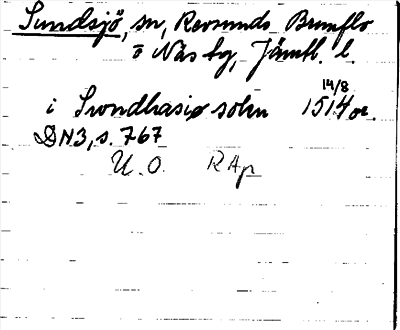 Sundsjö, sn, Revsunds Brunflo
o Näs tg, Jämtl. l.
14/8
i Swndhasiø sokn 1514 or.
DN3, s. 767
U. O. RAp